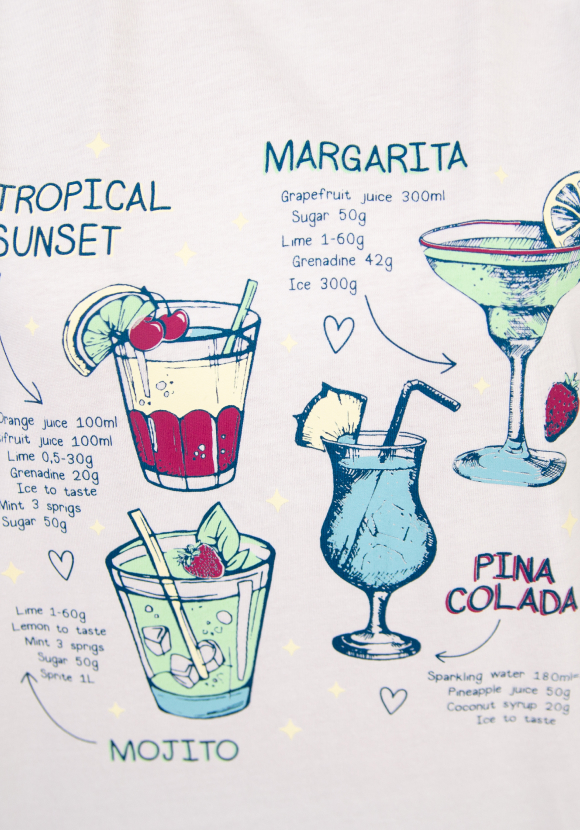 TROPICAL
SUNSET
Orange juice 100ml
ifruit juice 100ml
Lime 0,5-30g
Grenadine 20g
Ice to taste
Mint 3 sprigs
Sugar 50g
MARGARITA
Grapefruit juice 300ml
Sugar 50g
Lime 1-60g
Grenadine 42g
Ice 300g
Lime 1-60g
Lemon to taste
Mint 3 sprigs
Sugar 50g
Sprite 1L
MOJITO
PINA
COLADA
Sparkling water 180ml
Pineapple juice 50g
Coconut syrup 20g
Ice to taste